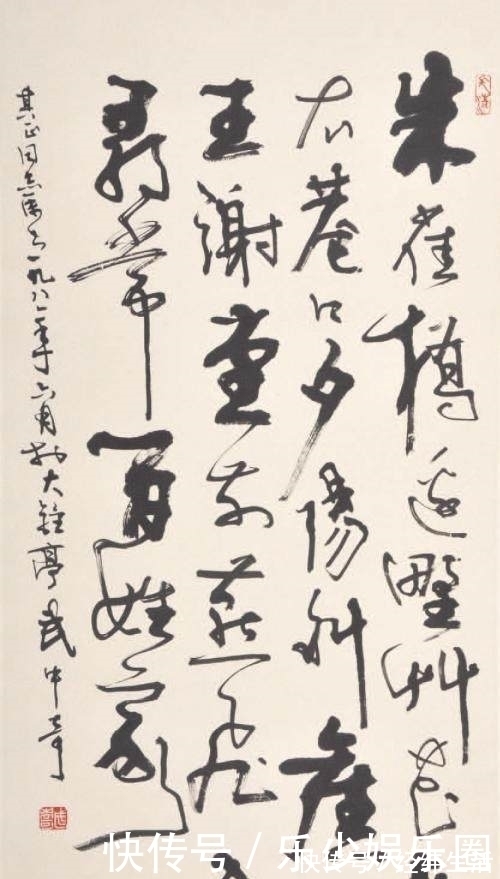 朱雀橋邊野艸花
衣巷口夕陽斜舊
王謝堂前燕飛
尋常百姓家
其正同志属 一九八 年六月於大鍾亭武中奇
快传号 / 乐少娱乐圈